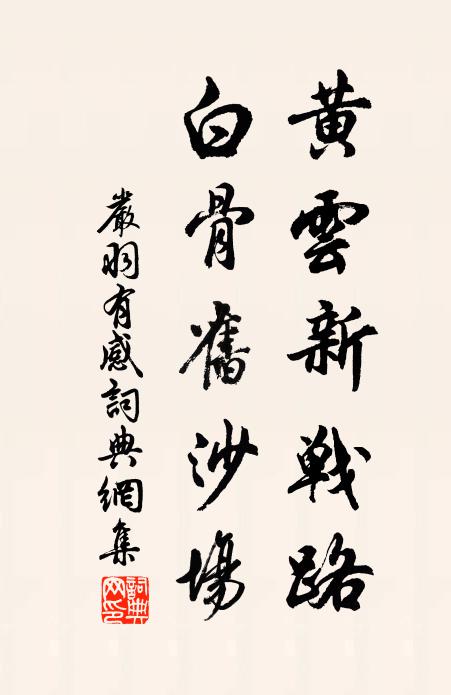 黄雲新戦路
白骨舊沙場
嚴羽有感詞典網集
詞典網印